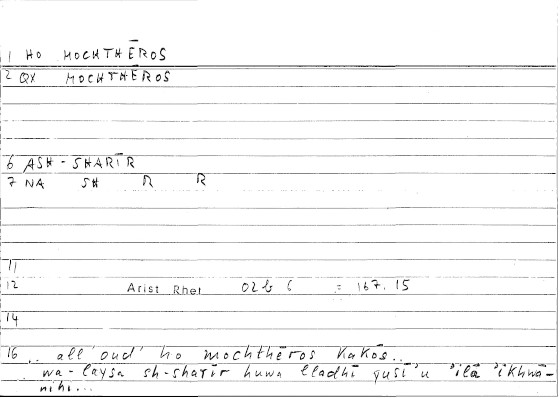 1 HO MOCHTHĒROS
2 QX MOCHTHĒROS
6 ASH-SHARĪR
7 NA SH R R
11
12 Arist Rhet 02b 6 = 167.15
14
16 .. all' oud' ho mochthēros kakōs..
wa-laysa sh-sharīr huwa lladhī yusī'u 'ilā 'ikhwā-
nihi...